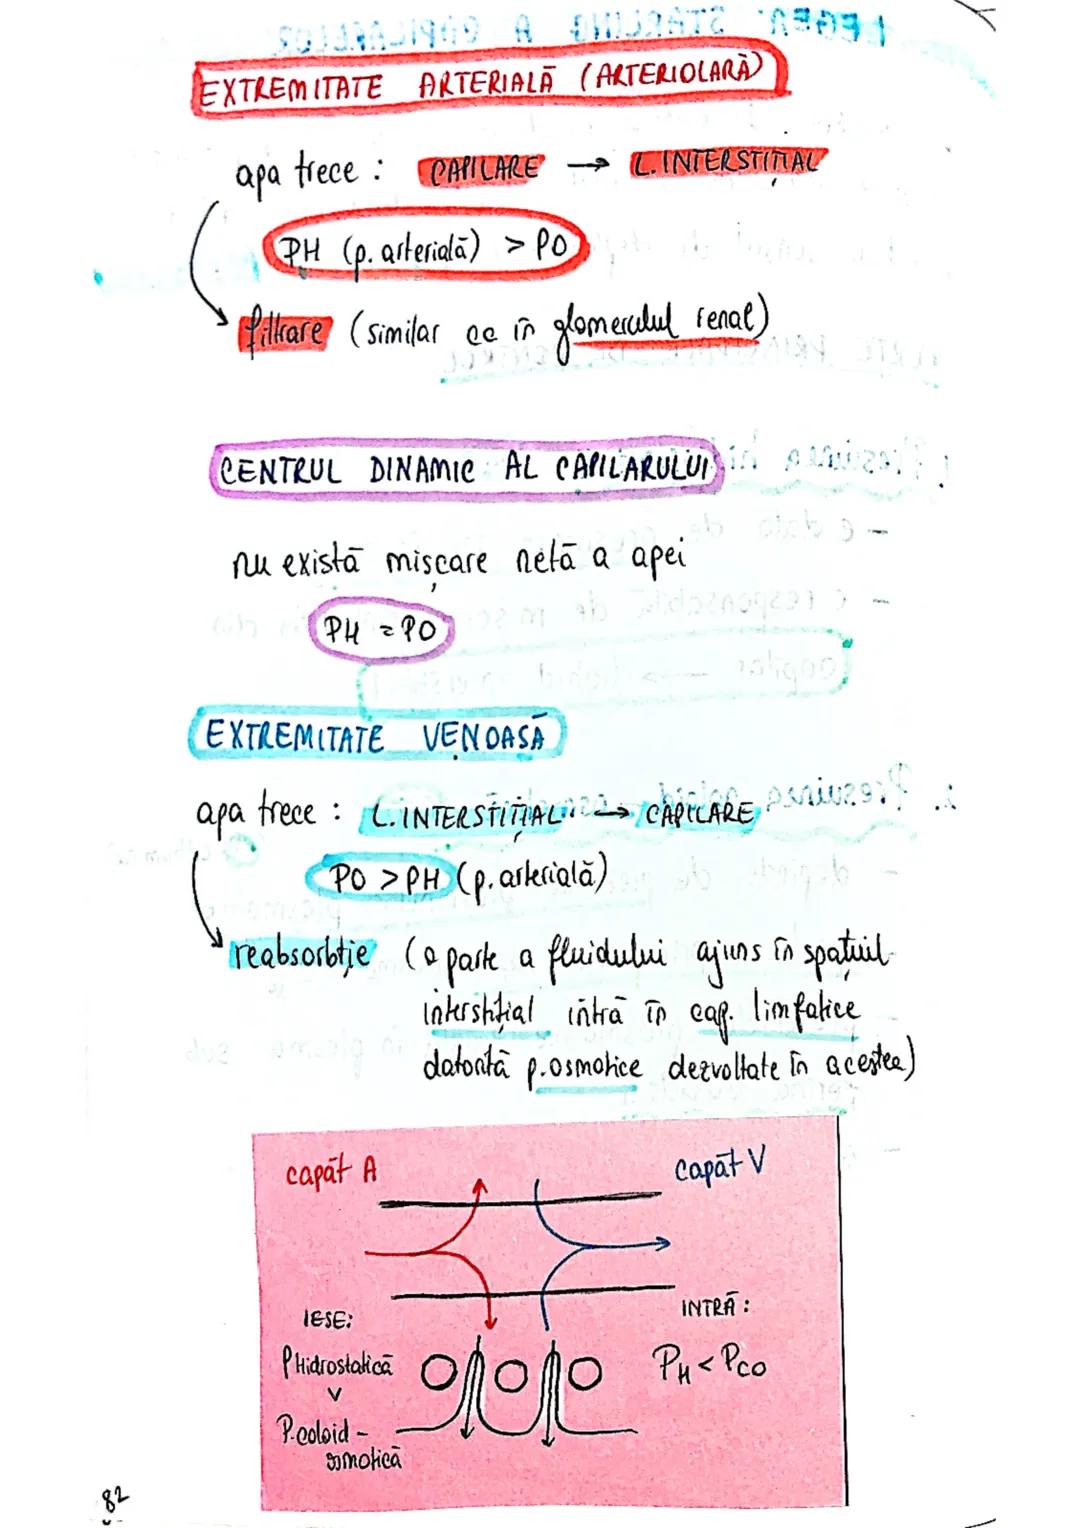 EXTREMITATE ARTERIALĂ (ARTERIOLARĂ)
apa trece : CAPILARE → L.INTERSTIȚIAL
PH (p. arterială) > PO
filtrare (similar ca în glomerulul renal)
CENTRUL DINAMIC AL CAPILARULUI
nu există mișcare netă a apei
PH = PO
EXTREMITATE VENOASĂ
apa trece : L.INTERSTIȚIAL → CAPILARE
PO > PH (p. arterială)
reabsorbție (o parte a fluidului ajuns în spațiul
interstițial intră în cap. limfatice
datorită p.osmotice dezvoltate în acestea)
capăt A
capăt V
IESE:
PHidrostatică
>
P.coloid-
osmotică
INTRĂ:
PH < PCO
82